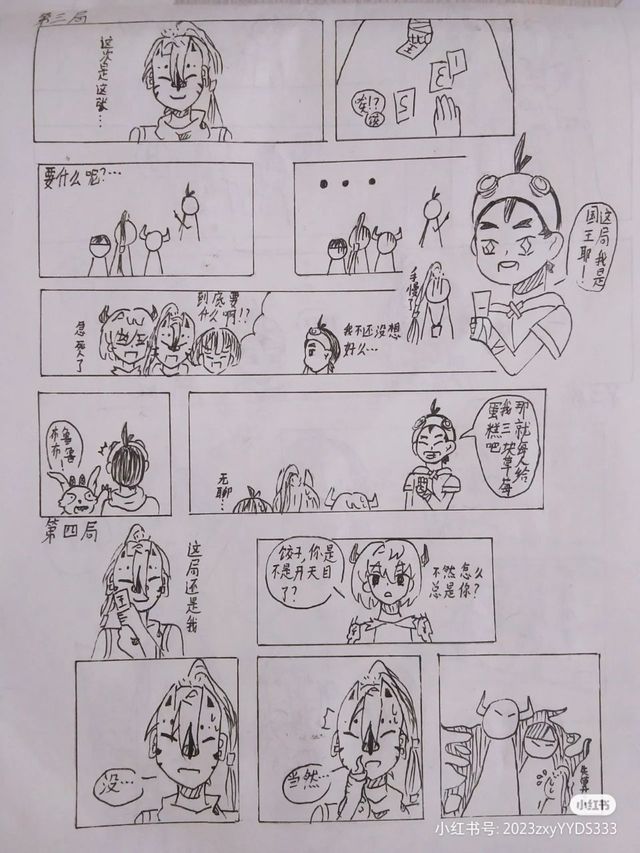 第三局
这次是这张…
咦!?
3
要什么呢?…
• • •
这局我是
国王耶!
手慢
急死了
到底要
什么啊!?
我不还没想
好么…
布鲁
布鲁
无聊…
那就每人给
我三块草莓
蛋糕吧
第四局
这局还是我
饺子,你是
不是开天目
了?
不然怎么
总是你?
没…
当然…
小红书
小红书号: 2023zxyYYDS333